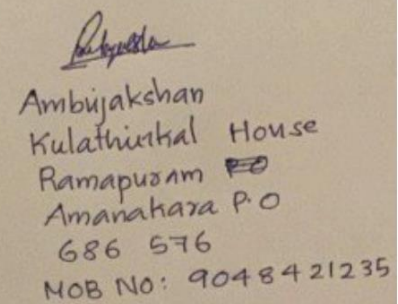 Ambujakshan
Kulathinkal House
Ramapuram
Amanakara P.O
686 576
MOB NO: 9048421235